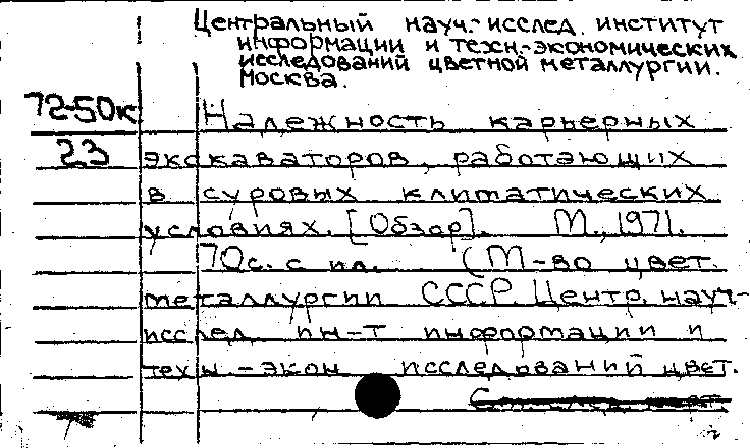 Центральный науч.-исслед. институт
информации и техн.-экономических
исследований цветной металлургии.
Москва.
72-50к
23
Надежность карьерных
экскаваторов, работающих
в суровых климатических
условиях. [Обзор]. М., 1971.
70с. с ил. (М-во цвет.
металлургии СССР. Центр. науч-
исслед. ин-т информации и
техн.-экон исследований цвет.